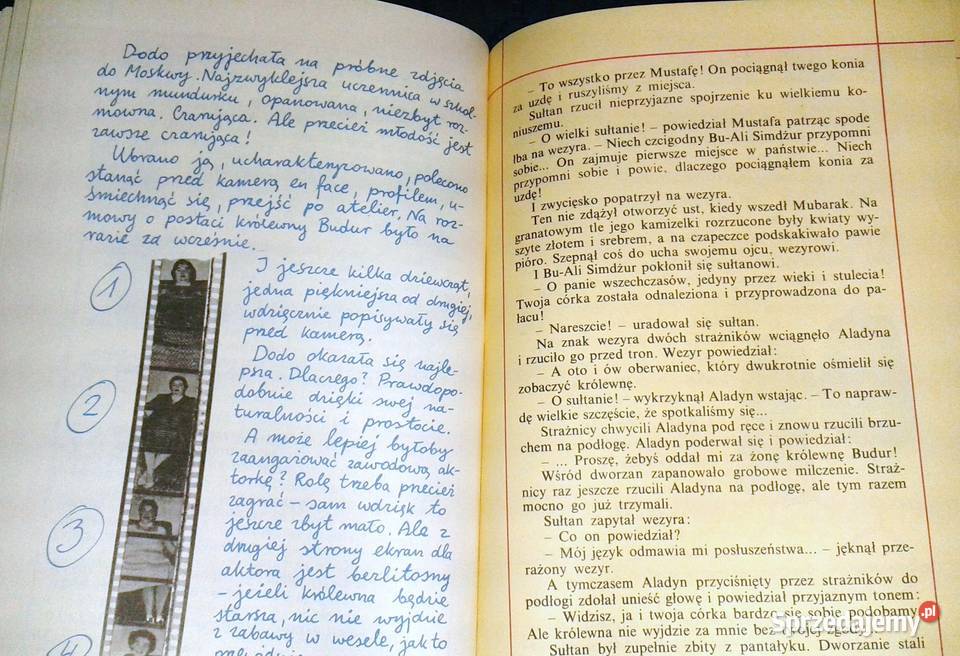 Dodo przyjechała na próbne zdjęcia
do Moskwy. Najzwyklejsza uczennica w szkol-
nym mundurku, opanowana, niezbyt roz-
mowna. Czarująca. Ale przecież młodość jest
zawsze czarująca!
Ubrano ją, ucharakteryzowano, polecono
stanąć przed kamerą en face, profilem, u-
śmiechnąć się, przejść po atelier. Na roz-
mowy o postaci królewny Budur było na
razie za wcześnie.
I jeszcze kilka dziewcząt,
jedna piękniejsza od drugiej,
wdzięcznie popisywały się
przed kamerą.
Dodo okazała się najle-
psza. Dlaczego? Prawdopo-
dobnie dzięki swej na-
turalności i prostocie.
A może lepiej byłoby
zaangażować zawodową ak-
torkę? Rolę trzeba przecież
zagrać – sam wdzięk to
jeszcze zbyt mało. Ale z
drugiej strony ekran dla
aktora jest bezlitosny
– jeżeli królewna będzie
starsza, nic nie wyjdzie
z zabawy w wesele, jak to
1
2
3
4
– To wszystko przez Mustafę! On pociągnął twego konia
za uzdę i ruszyliśmy z miejsca.
Sułtan rzucił nieprzyjazne spojrzenie ku wielkiemu ko-
niuszemu.
– O wielki sułtanie! – powiedział Mustafa patrząc spode
łba na wezyra. – Niech czcigodny Bu-Ali Simdżur przypomni
sobie... On zajmuje pierwsze miejsce w państwie... Niech
przypomni sobie i powie, dlaczego pociągnąłem konia za
uzdę!
I zwycięsko popatrzył na wezyra.
Ten nie zdążył otworzyć ust, kiedy wszedł Mubarak. Na
granatowym tle jego kamizelki rozrzucone były kwiaty wy-
szyte złotem i srebrem, a na czapeczce podskakiwało pawie
pióro. Szepnął coś do ucha swojemu ojcu, wezyrowi.
I Bu-Ali Simdżur pokłonił się sułtanowi.
– O panie wszechczasów, jedyny przez wieki i stulecia!
Twoja córka została odnaleziona i przyprowadzona do pa-
łacu!
– Nareszcie! – uradował się sułtan.
Na znak wezyra dwóch strażników wciągnęło Aladyna
i rzuciło go przed tron. Wezyr powiedział:
– A oto i ów oberwaniec, który dwukrotnie ośmielił się
zobaczyć królewnę.
– O sułtanie! – wykrzyknął Aladyn wstając. – To napraw-
dę wielkie szczęście, że spotkaliśmy się...
Strażnicy chwycili Aladyna pod ręce i znowu rzucili brzu-
chem na podłogę. Aladyn poderwał się i powiedział:
– ... Proszę, żebyś oddał mi za żonę królewnę Budur!
Wśród dworzan zapanowało grobowe milczenie. Straż-
nicy raz jeszcze rzucili Aladyna na podłogę, ale tym razem
mocno go już trzymali.
Sułtan zapytał wezyra:
– Co on powiedział?
– Mój język odmawia mi posłuszeństwa... – jęknął prze-
rażony wezyr.
A tymczasem Aladyn przyciśnięty przez strażników do
podłogi zdołał unieść głowę i powiedział przyjaznym tonem:
– Widzisz, ja i twoja córka bardzo się sobie podobamy.
Ale królewna nie wyjdzie za mnie bez twojej zgody...
Sułtan był zupełnie zbity z pantałyku. Dworzanie stali
Sprzedajemy.pl